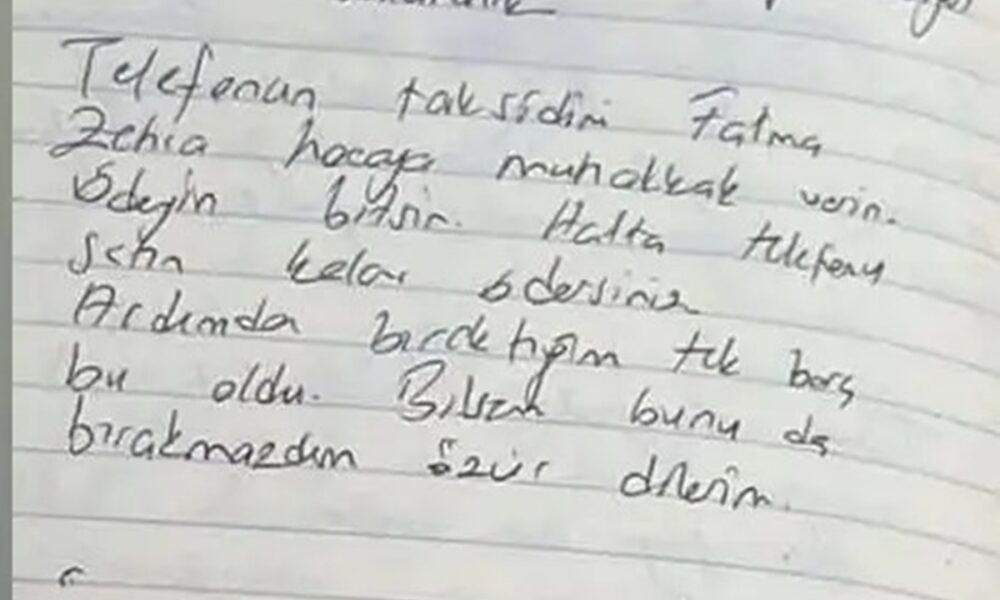 Telefonun taksidini Fatma
Zehra hocaya muhakkak verin.
Ödeyin bitsin. Hatta telefonu
satın kalanı ödersiniz
Ardımda bıraktığım tek borç
bu oldu. Bilsem bunu da
bırakmazdım özür dilerim.